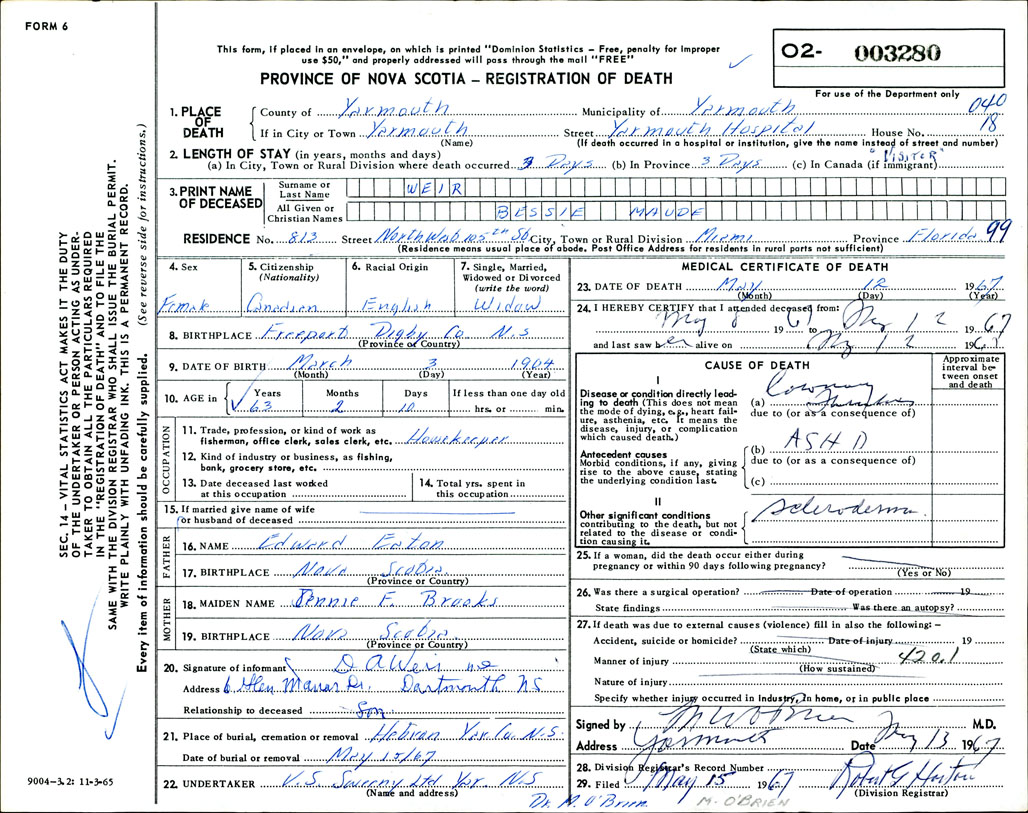 FORM 6
This form, if placed in an envelope, on which is printed "Dominion Statistics – Free, penalty for improper
use $50," and properly addressed will pass through the mail "FREE"
PROVINCE OF NOVA SCOTIA – REGISTRATION OF DEATH
O2- 003280
For use of the Department only
040
18
1. PLACE OF DEATH
County of Yarmouth Municipality of Yarmouth
If in City or Town Yarmouth Street Yarmouth Hospital House No.
(Name) (If death occurred in a hospital or institution, give the name instead of street and number)
2. LENGTH OF STAY (in years, months and days) "VISITER"
(a) In City, Town or Rural Division where death occurred 3 Days (b) In Province 3 Days (c) In Canada (if immigrant)
3. PRINT NAME OF DECEASED
Surname or Last Name WEIR
All Given or Christian Names BESSIE MAUDE
RESIDENCE No. 813 Street North West 105th St City, Town or Rural Division Miami Province Florida 99
(Residence means usual place of abode. Post Office Address for residents in rural parts not sufficient)
4. Sex
Female
5. Citizenship
(Nationality)
Canadian
6. Racial Origin
English
7. Single, Married,
Widowed or Divorced
(write the word)
Widow
8. BIRTHPLACE Freeport Digby Co N.S
(Province or Country)
9. DATE OF BIRTH March 3 1904
(Month) (Day) (Year)
10. AGE in
Years Months Days If less than one day old
63 2 10 hrs. or min.
OCCUPATION
11. Trade, profession, or kind of work as
fisherman, office clerk, sales clerk, etc. Housekeeper
12. Kind of industry or business, as fishing,
bank, grocery store, etc.
13. Date deceased last worked
at this occupation
14. Total yrs. spent in
this occupation
15. If married give name of wife
or husband of deceased
FATHER
16. NAME Edward Eaton
17. BIRTHPLACE Nova Scotia
(Province or Country)
MOTHER
18. MAIDEN NAME Jennie F. Brooks
19. BIRTHPLACE Nova Scotia
(Province or Country)
20. Signature of informant D A Weir
Address 6 Glen Manor Dr. Dartmouth NS
Relationship to deceased Son
21. Place of burial, cremation or removal Hebron Yar Co. N.S.
Date of burial or removal May 15/67
22. UNDERTAKER V.S. Sweeny Ltd Yar. N.S
(Name and address)
MEDICAL CERTIFICATE OF DEATH
23. DATE OF DEATH May 12 1967
(Month) (Day) (Year)
24. I HEREBY CERTIFY that I attended deceased from:
May 8 1967 to May 12 1967
and last saw her alive on May 12 1967
CAUSE OF DEATH
Approximate
interval be-
tween onset
and death
I
Disease or condition directly lead-
ing to death (This does not mean
the mode of dying, e.g., heart fail-
ure, asthenia, etc. It means the
disease, injury, or complication
which caused death.)
(a) Coronary Thrombosis
due to (or as a consequence of)
Antecedent causes
Morbid conditions, if any, giving
rise to the above cause, stating
the underlying condition last.
(b) ASHD
due to (or as a consequence of)
(c)
II
Other significant conditions
contributing to the death, but not
related to the disease or condi-
tion causing it.
Scleroderma.
25. If a woman, did the death occur either during
pregnancy or within 90 days following pregnancy?
(Yes or No)
26. Was there a surgical operation? Date of operation 19
State findings Was there an autopsy?
27. If death was due to external causes (violence) fill in also the following: –
Accident, suicide or homicide? Date of injury 19
(State which)
Manner of injury 420.1
(How sustained)
Nature of injury
Specify whether injury occurred in Industry, in home, or in public place
Signed by M W O'Brien M.D.
Address Yarmouth Date May 13 1967
28. Division Registrar's Record Number
29. Filed May 15 1967 Robert G Horton
(Division Registrar)
Dr. M. O'Brien M. O'BRIEN
SEC. 14 – VITAL STATISTICS ACT MAKES IT THE DUTY
OF THE UNDERTAKER OR PERSON ACTING AS UNDER-
TAKER TO OBTAIN ALL THE PARTICULARS REQUIRED
IN THE "REGISTRATION OF DEATH" AND TO FILE THE
SAME WITH THE DIVISION REGISTRAR WHO SHALL ISSUE THE BURIAL PERMIT.
WRITE PLAINLY WITH UNFADING INK. THIS IS A PERMANENT RECORD.
Every item of information should be carefully supplied. (See reverse side for instructions.)
9004-3.2: 11-3-65